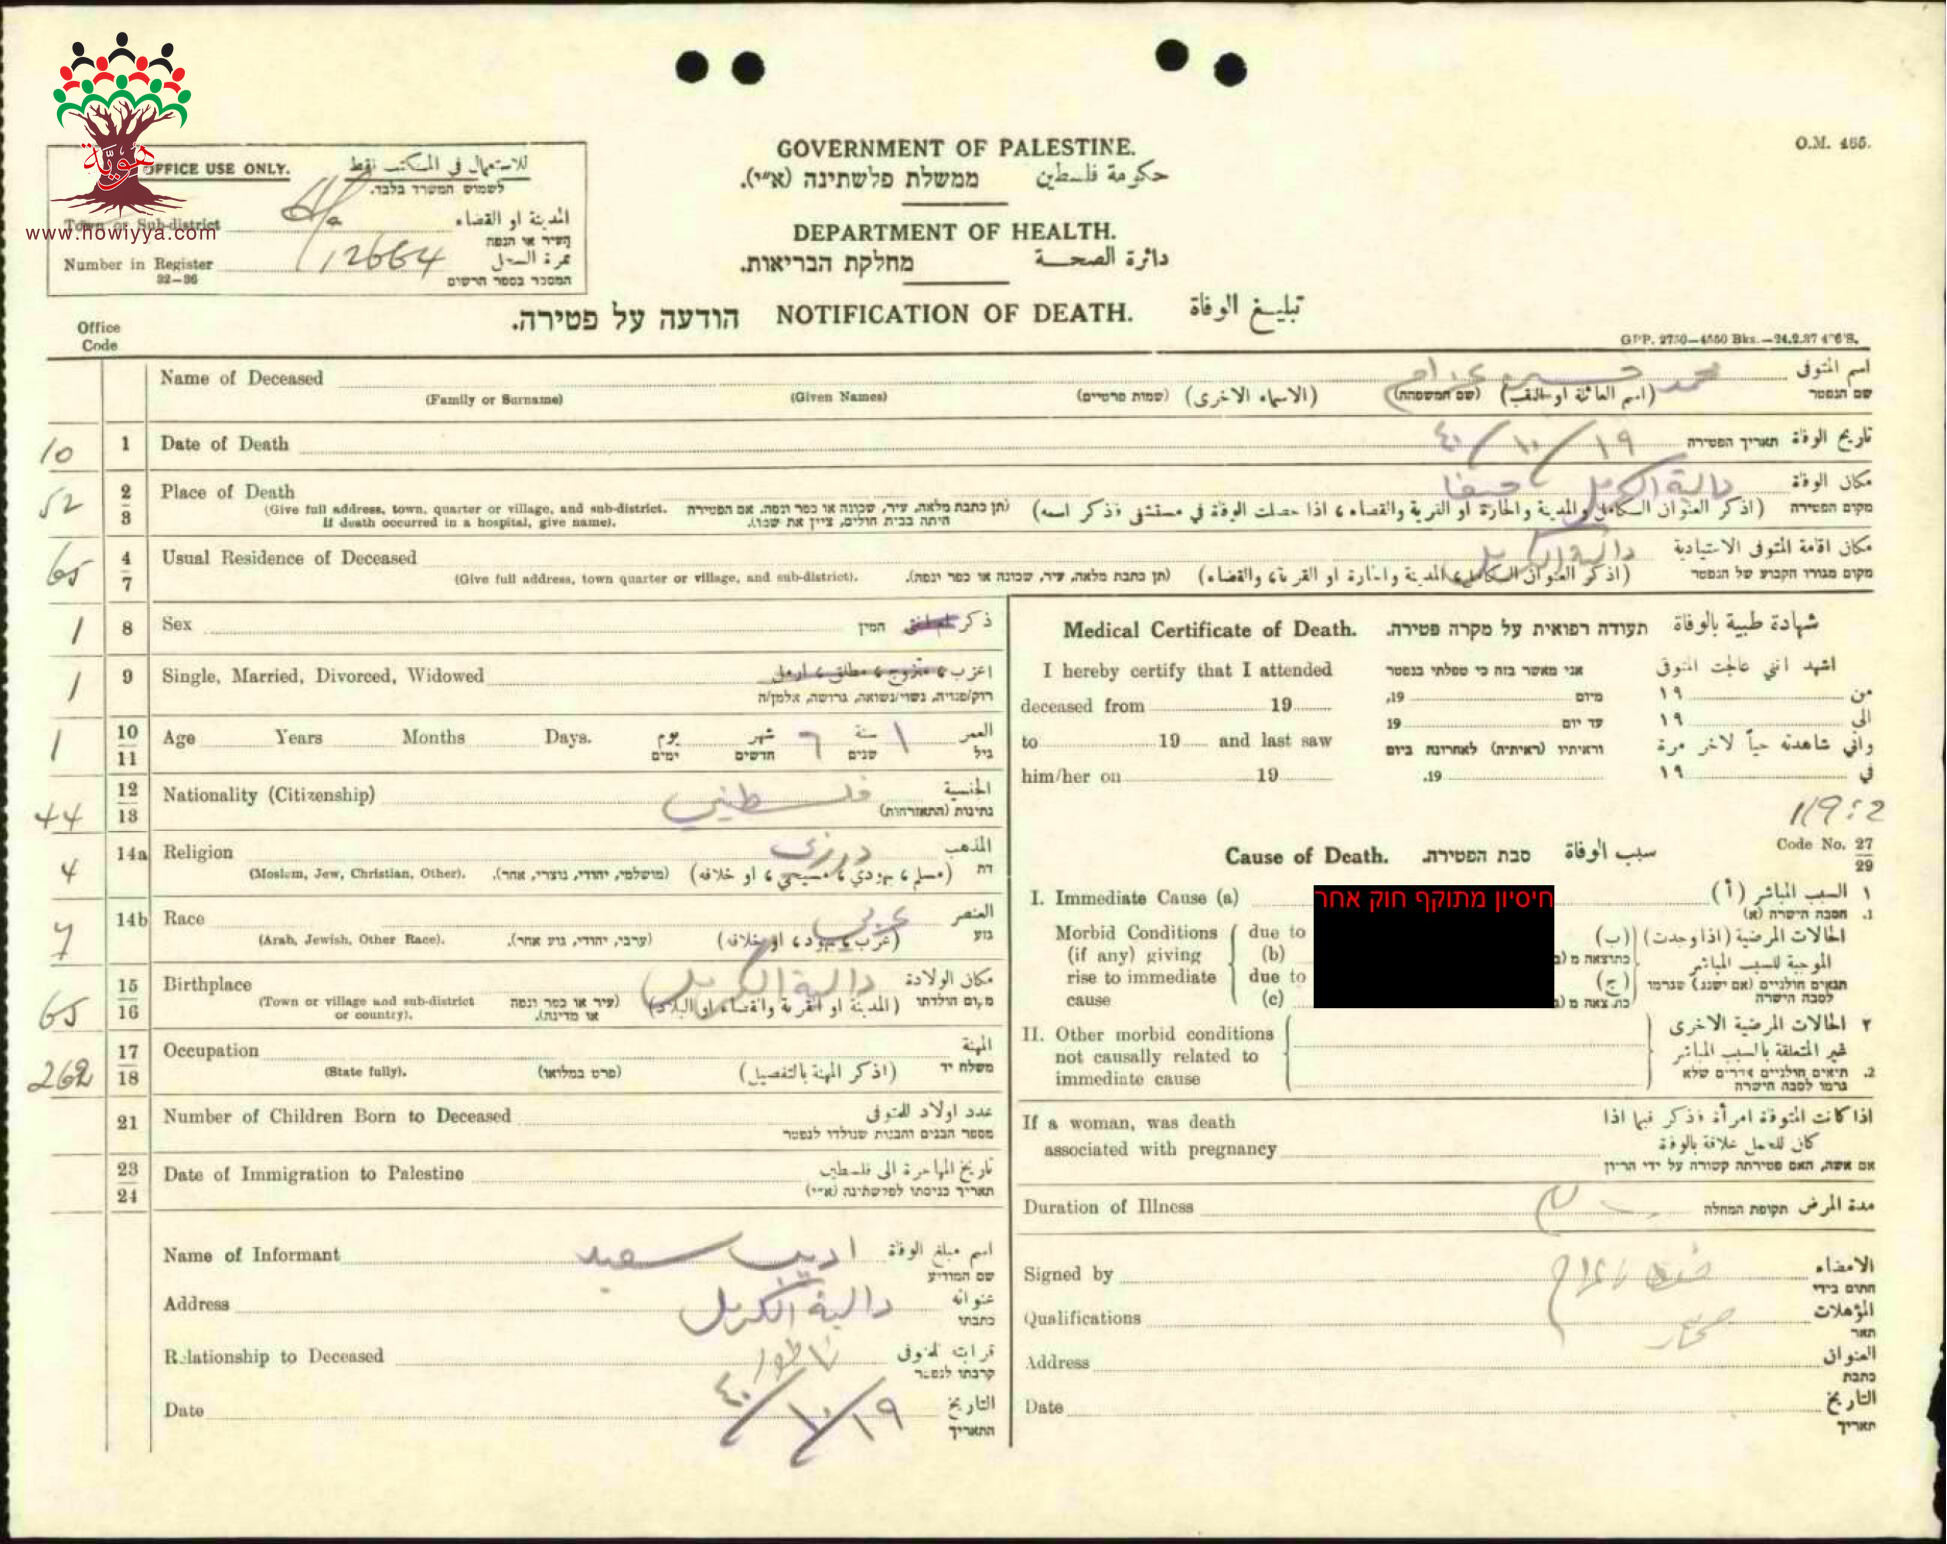 هوية
www.howiyya.com
OFFICE USE ONLY. للاستعمال في المكتب فقط
לשמוש המשרד בלבד.
Town or Sub-district المدينة او القضاء
העיר או הנפה
Number in Register 12664 نمرة السجل
32—36 המספר בספר הרשום
O.M. 465.
GOVERNMENT OF PALESTINE.
ממשלת פלשתינה (א״י). حكومة فلسطين
DEPARTMENT OF HEALTH.
מחלקת הבריאות. دائرة الصحة
הודעה על פטירה. NOTIFICATION OF DEATH. تبليغ الوفاة
Office
Code
GPP. 2750—4550 Bks.—24.2.37
Name of Deceased محمد حسين عزام اسم المتوفى
(Family or Surname) (Given Names) (שמות פרטיים) (الاسماء الاخرى) (שם המשפחה) (اسم العائلة او اللقب) שם הנפטר
10 1 Date of Death ١٩/١٠/٤٠ תאריך הפטירה تاريخ الوفاة
52 2 3 Place of Death دالية الكرمل حيفا مكان الوفاة
(Give full address, town, quarter or village, and sub-district. (תן כתבת מלאה, עיר, שכונה או כפר ונפה. אם הפטירה
If death occurred in a hospital, give name). היתה בבית חולים, ציין את שמו). (اذكر العنوان الكامل والمدينة والحارة او القرية والقضاء، اذا حصلت الوفاة في مستشفى فذكر اسمه) מקום הפטירה
65 4 7 Usual Residence of Deceased دالية الكرمل مكان اقامة المتوفى الاعتيادية
(Give full address, town quarter or village, and sub-district). (תן כתבת מלאה, עיר, שכונה או כפר ונפה). (اذكر العنوان الكامل، المدينة والحارة او القرية والقضاء) מקום מגורו הקבוע של הנפטר
1 8 Sex המין ذكر او انثى
1 9 Single, Married, Divorced, Widowed اعزب، متزوج، مطلق، ارمل
רוק/פנויה, נשוי/נשואה, גרוש/ה, אלמן/ה
1 10 11 Age Years Months Days. يوم شهر ٦ سنة ١ العمر
ימים חדשים שנים גיל
44 12 13 Nationality (Citizenship) فلسطيني الجنسية
נתינות (התאזרחות)
4 14a Religion درزي المذهب
(Moslem, Jew, Christian, Other). (מושלמי, יהודי, נוצרי, אחר). (مسلم، يهودي، مسيحي، او خلافه) דת
7 14b Race عربي العنصر
(Arab, Jewish, Other Race). (ערבי, יהודי, גזע אחר). (عرب، يهود، او خلافه) גזע
65 15 16 Birthplace دالية الكرمل مكان الولادة
(Town or village and sub-district (עיר או כפר ונפה (المدينة او القرية والقضاء او البلاد) מקום הולדתו
or country). או מדינה).
262 17 18 Occupation المهنة
(State fully). (פרט במלואו) (اذكر المهنة بالتفصيل) משלח יד
21 Number of Children Born to Deceased عدد اولاد المتوفى
מספר הבנים והבנות שנולדו לנפטר
23 24 Date of Immigration to Palestine تاريخ المهاجرة الى فلسطين
תאריך כניסתו לפלשתינה (א״י)
Name of Informant اديب سعيد اسم مبلغ الوفاة
שם המודיע
Address دالية الكرمل عنوانه
כתבתו
Relationship to Deceased قرابته للمتوفى
קרבתו לנפטר
Date ١٩/١٠/٤٠ التاريخ
התאריך
Medical Certificate of Death. תעודה רפואית על מקרה פטירה. شهادة طبية بالوفاة
I hereby certify that I attended אני מאשר בזה כי טפלתי בנפטר اشهد انني عالجت المتوفى
deceased from 19 19, מיום ١٩ من
to 19 and last saw 19 עד יום ١٩ الى
וראיתיו (ראיתיה) לאחרונה ביום واني شاهدته حياً لآخر مرة
him/her on 19 19. ١٩ في
Code No. 27 29
Cause of Death. סבת הפטירה. سبب الوفاة
I. Immediate Cause (a) חיסיון מתוקף חוק אחר ١ السبب المباشر (أ)
1. הסבה הישרה (א)
Morbid Conditions due to الحالات المرضية (اذا وجدت) (ب)
(if any) giving (b) الموجبة للسبب المباشر
rise to immediate due to (ج) תנאים חולניים (אם ישנם) שגרמו
cause (c) לסבה הישרה
II. Other morbid conditions ٢ الحالات المرضية الاخرى
not causally related to غير المتعلقة بالسبب المباشر
immediate cause 2. תנאים חולניים אחרים שלא
גרמו לסבה הישרה
If a woman, was death اذا كانت المتوفاة امرأة فذكر فيما اذا
associated with pregnancy كان للحمل علاقة بالوفاة
אם אשה, האם פטירתה קשורה על ידי הריון
Duration of Illness תקופת המחלה مدة المرض
Signed by الامضاء
חתום בידי
Qualifications المؤهلات
תאר
Address العنوان
כתבת
Date التاريخ
תאריך